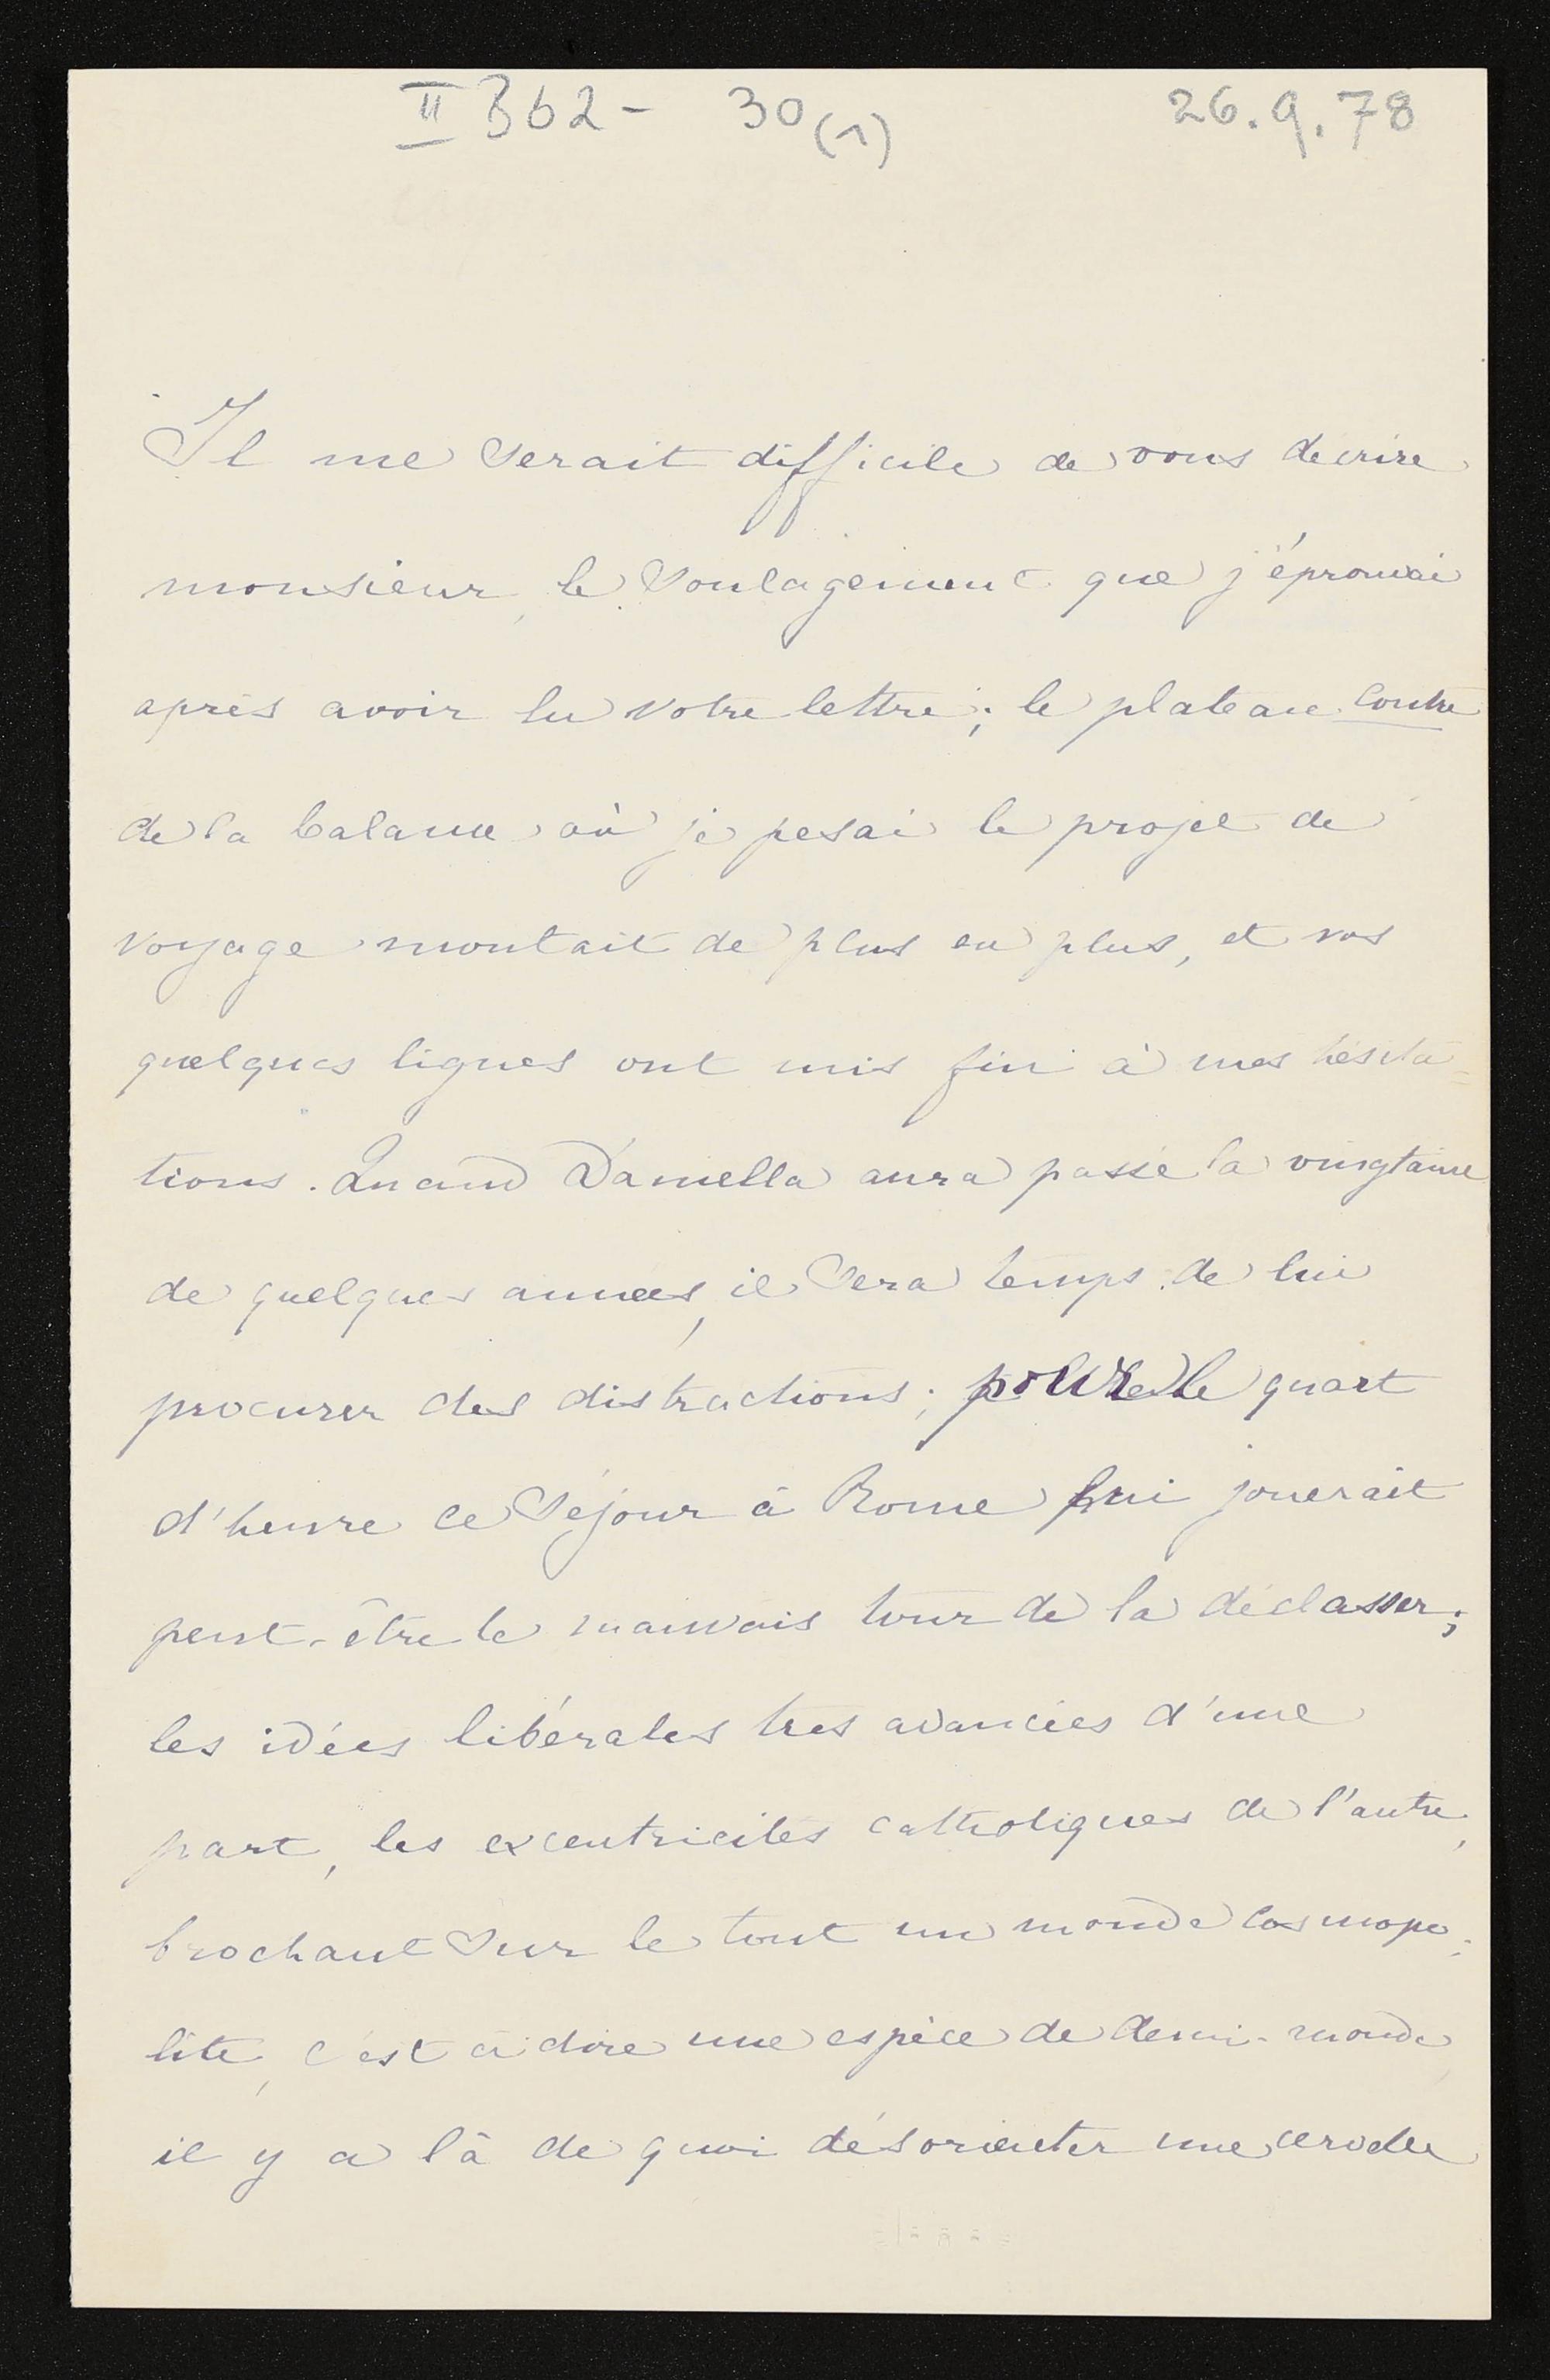 II B62 - 30(1) 26.9.78
Il me serait difficile de vous décrire
monsieur, le soulagement que j'éprouvai
après avoir lu votre lettre; le plateau contre
de la balance où je pesai le projet de
voyage montait de plus en plus, et vos
quelques lignes ont mis fin à mes hésita=
tions. Quand Daniella aura passé la vingtaine
de quelques années, il sera temps de lui
procurer des distractions; pour le quart
d'heure ce séjour à Rome lui jouerait
peut-être le mauvais tour de la déclasser;
les idées libérales très avancées d'une
part, les excentricités catholiques de l'autre,
brochant sur le tout un monde cosmopo=
lite, c'est à dire une espèce de demi-monde,
il y a là de quoi désorienter une